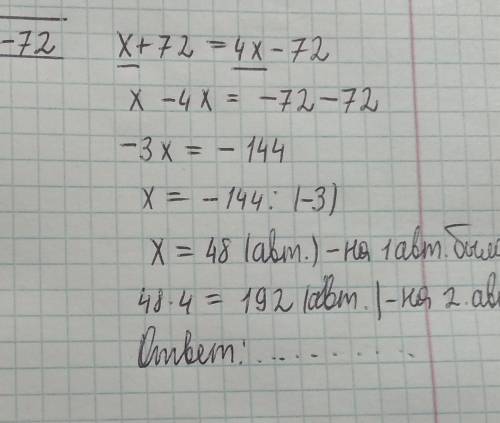 -72
x + 72 = 4x - 72
x - 4x = -72 - 72
-3x = - 144
x = - 144 : (-3)
x = 48 (авт.) - на 1 авт. было
48 · 4 = 192 (авт.) - на 2. ав
Ответ: ..........